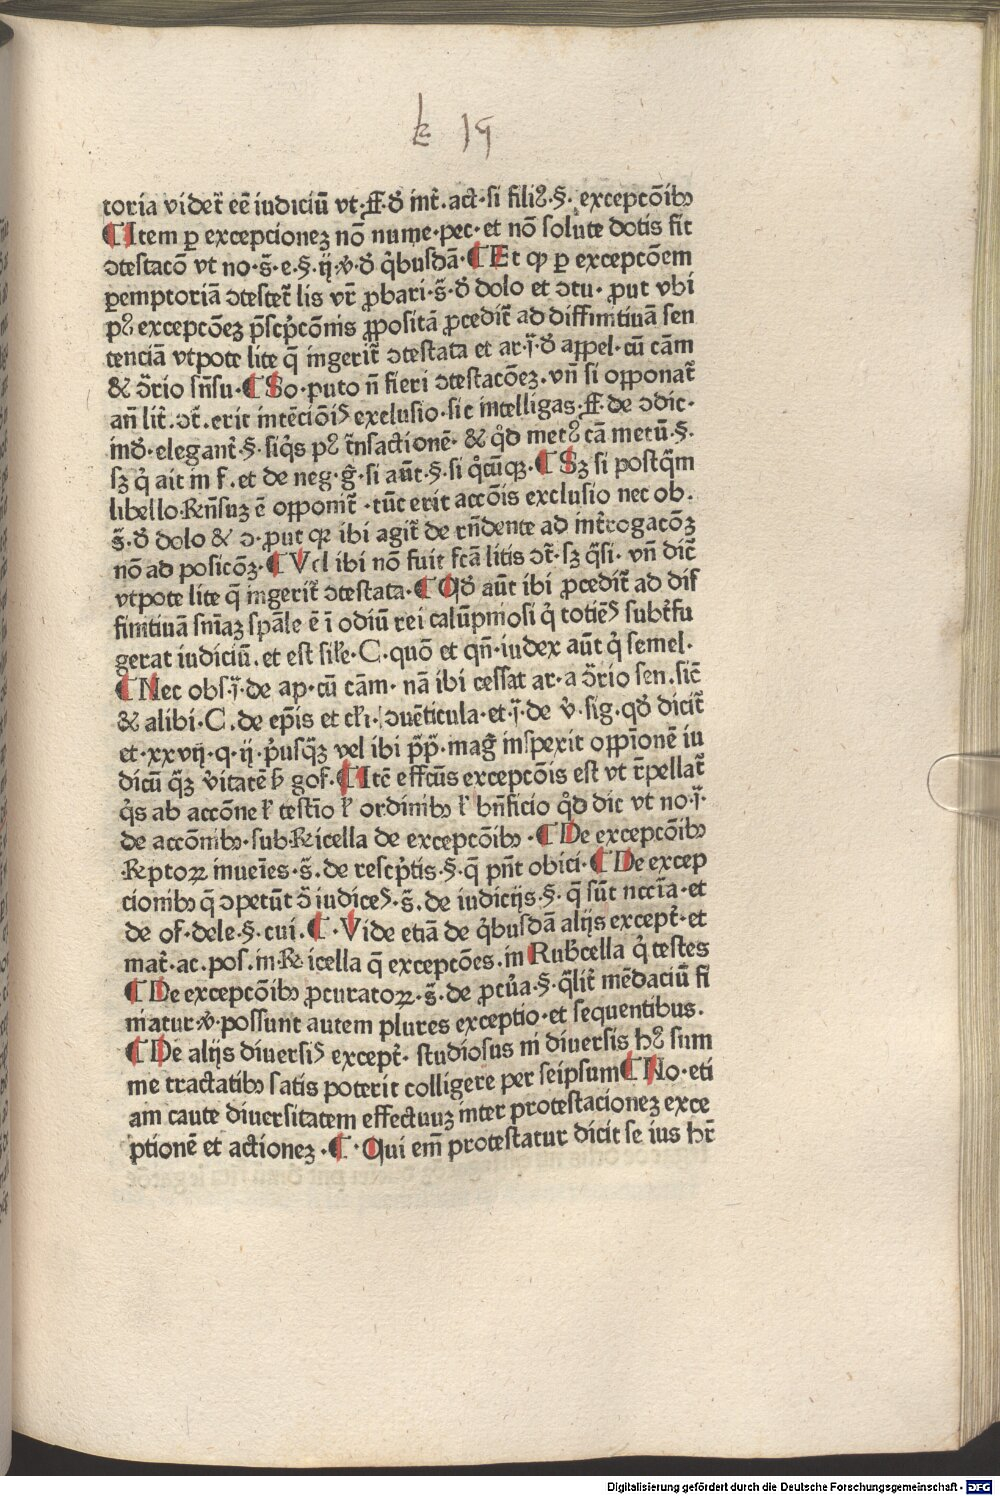 k 19
toria videt̃ eẽ iudiciũ vt·ff·đ int̉·act̉·si filiꝰ·§· exceptõibꝫ
¶ Item ꝑ excepcioneꝫ nõ nume·pec·et nõ solute dotis fit
ꝯtestacõ vt no·s̃·e·§·ij·v̉·đ q̉busdã·¶ Et ꝙ ꝑ excepcõem
ꝑemptoriã ꝯtestet̃ lis vr̃ ꝓbari·s̃·đ dolo et ꝯtu· ꝓut vbi
pꝰ excepcõeꝫ p̃scp̉cõnis ꝓpositã ꝓcedit̃ ad diffinitiuã sen
tenciã vtpote lite q̃ ingerit̃ ꝯtestata et ar·j̃·đ appel·cũ cãm
& ꝯ̃rio sñsu·¶ So·puto ñ fieri ꝯtestacõeꝫ·vñ si opponat̃
añ lit̉·ꝯt̉·erit intẽciõis exclusio·sic intelligas·ff·de ꝯdic·
inđ·elegant̉·§·siq̉s pꝰ t̃nsactionẽ· & q̊d metꝰ cã metũ·§·
sꝫ q̉ ait in f·et de neg·g̃·si aũt·§·si q̊cũqꝫ·¶ Sꝫ si postq̃m
libello Rñsuꝫ ẽ opponit̃ ·tũc erit accõis exclusio nec ob·
s̃·đ dolo & ꝯ·ꝓut ꝙ ibi agit̃ de rñdente ad int̉rogacõꝫ
nõ ad posicõꝫ·¶ Vel ibi nõ fuit fcã litis ꝯt̃·sꝫ q̃si·vñ dic̃
vtpote lite q̃ ingerit̃ ꝯtestata·¶ Qđ aũt ibi ꝓcedit̃ ad dif
finitiuã snĩaꝫ spãle ẽ ĩ odiũ rei calũpniosi q̉ totiẽs subt̉fu
gerat iudiciũ·et est sil̃e·C·quõ et qñ·iudex aũt q̉ semel·
¶ Nec obs·j̃·de ap·cũ cãm· nã ibi cessat ar·a ꝯ̃rio sen·sic̃
& alibi·C·de ep̃is et cl̃i·ꝯuẽticula·et·j̃·de v̉·sig·qđ dicit̃
et·xxvij·q·ij·p̉usq̃ꝫ vel ibi p̃p̃·mag̃ inspexit oppĩonẽ iu
dicũ q̃ꝫ v̉itatẽ ẜ gof·¶ Itẽ effcũs excepcõis est vt r̃pellat̃
q̉s ab accõne ł testĩo ł ordinibꝫ ł bñficio q̊d dic vt no·j̃·
de accõnibꝫ·sub·Ricella de excepcõibꝫ ·¶ De excepcõibꝫ
·Rptoꝝ inueĩes·s̃·de rescp̉tis·§·q̃ pñt obici·¶ De excep
cionibꝫ q̃ ꝯpetũt ꝯ̃ iudices·s̃·de iudicijs·§·q̃ sũt nccĩa·et
de of·dele·§·cui·¶ ·Vide etiã de q̉busdã alijs except̉·et
mat̉·ac·pos·in·Ricella q̃ excepcões·in Rubꝰcella q̉ testes
¶ De excepcõibꝫ ꝓcuratoꝝ·s̃·de ꝓcũa·§·q̃lit̉ mẽdaciũ fi
niatur·v̉·possunt autem plures exceptio·et sequentibus·
¶ De alijs diuersis except̉· studiosus in diuersis hꝰ sum
me tractatibꝫ satis poterit colligere per seipsum ¶ No·eti
am caute diuersitatem effectuuꝫ inter protestacioneꝫ exce
ptionẽ et actioneꝫ·¶ ·Qui em̃ protestatur dicit se ius hr̃
Digitalisierung gefördert durch die Deutsche Forschungsgemeinschaft - DFG